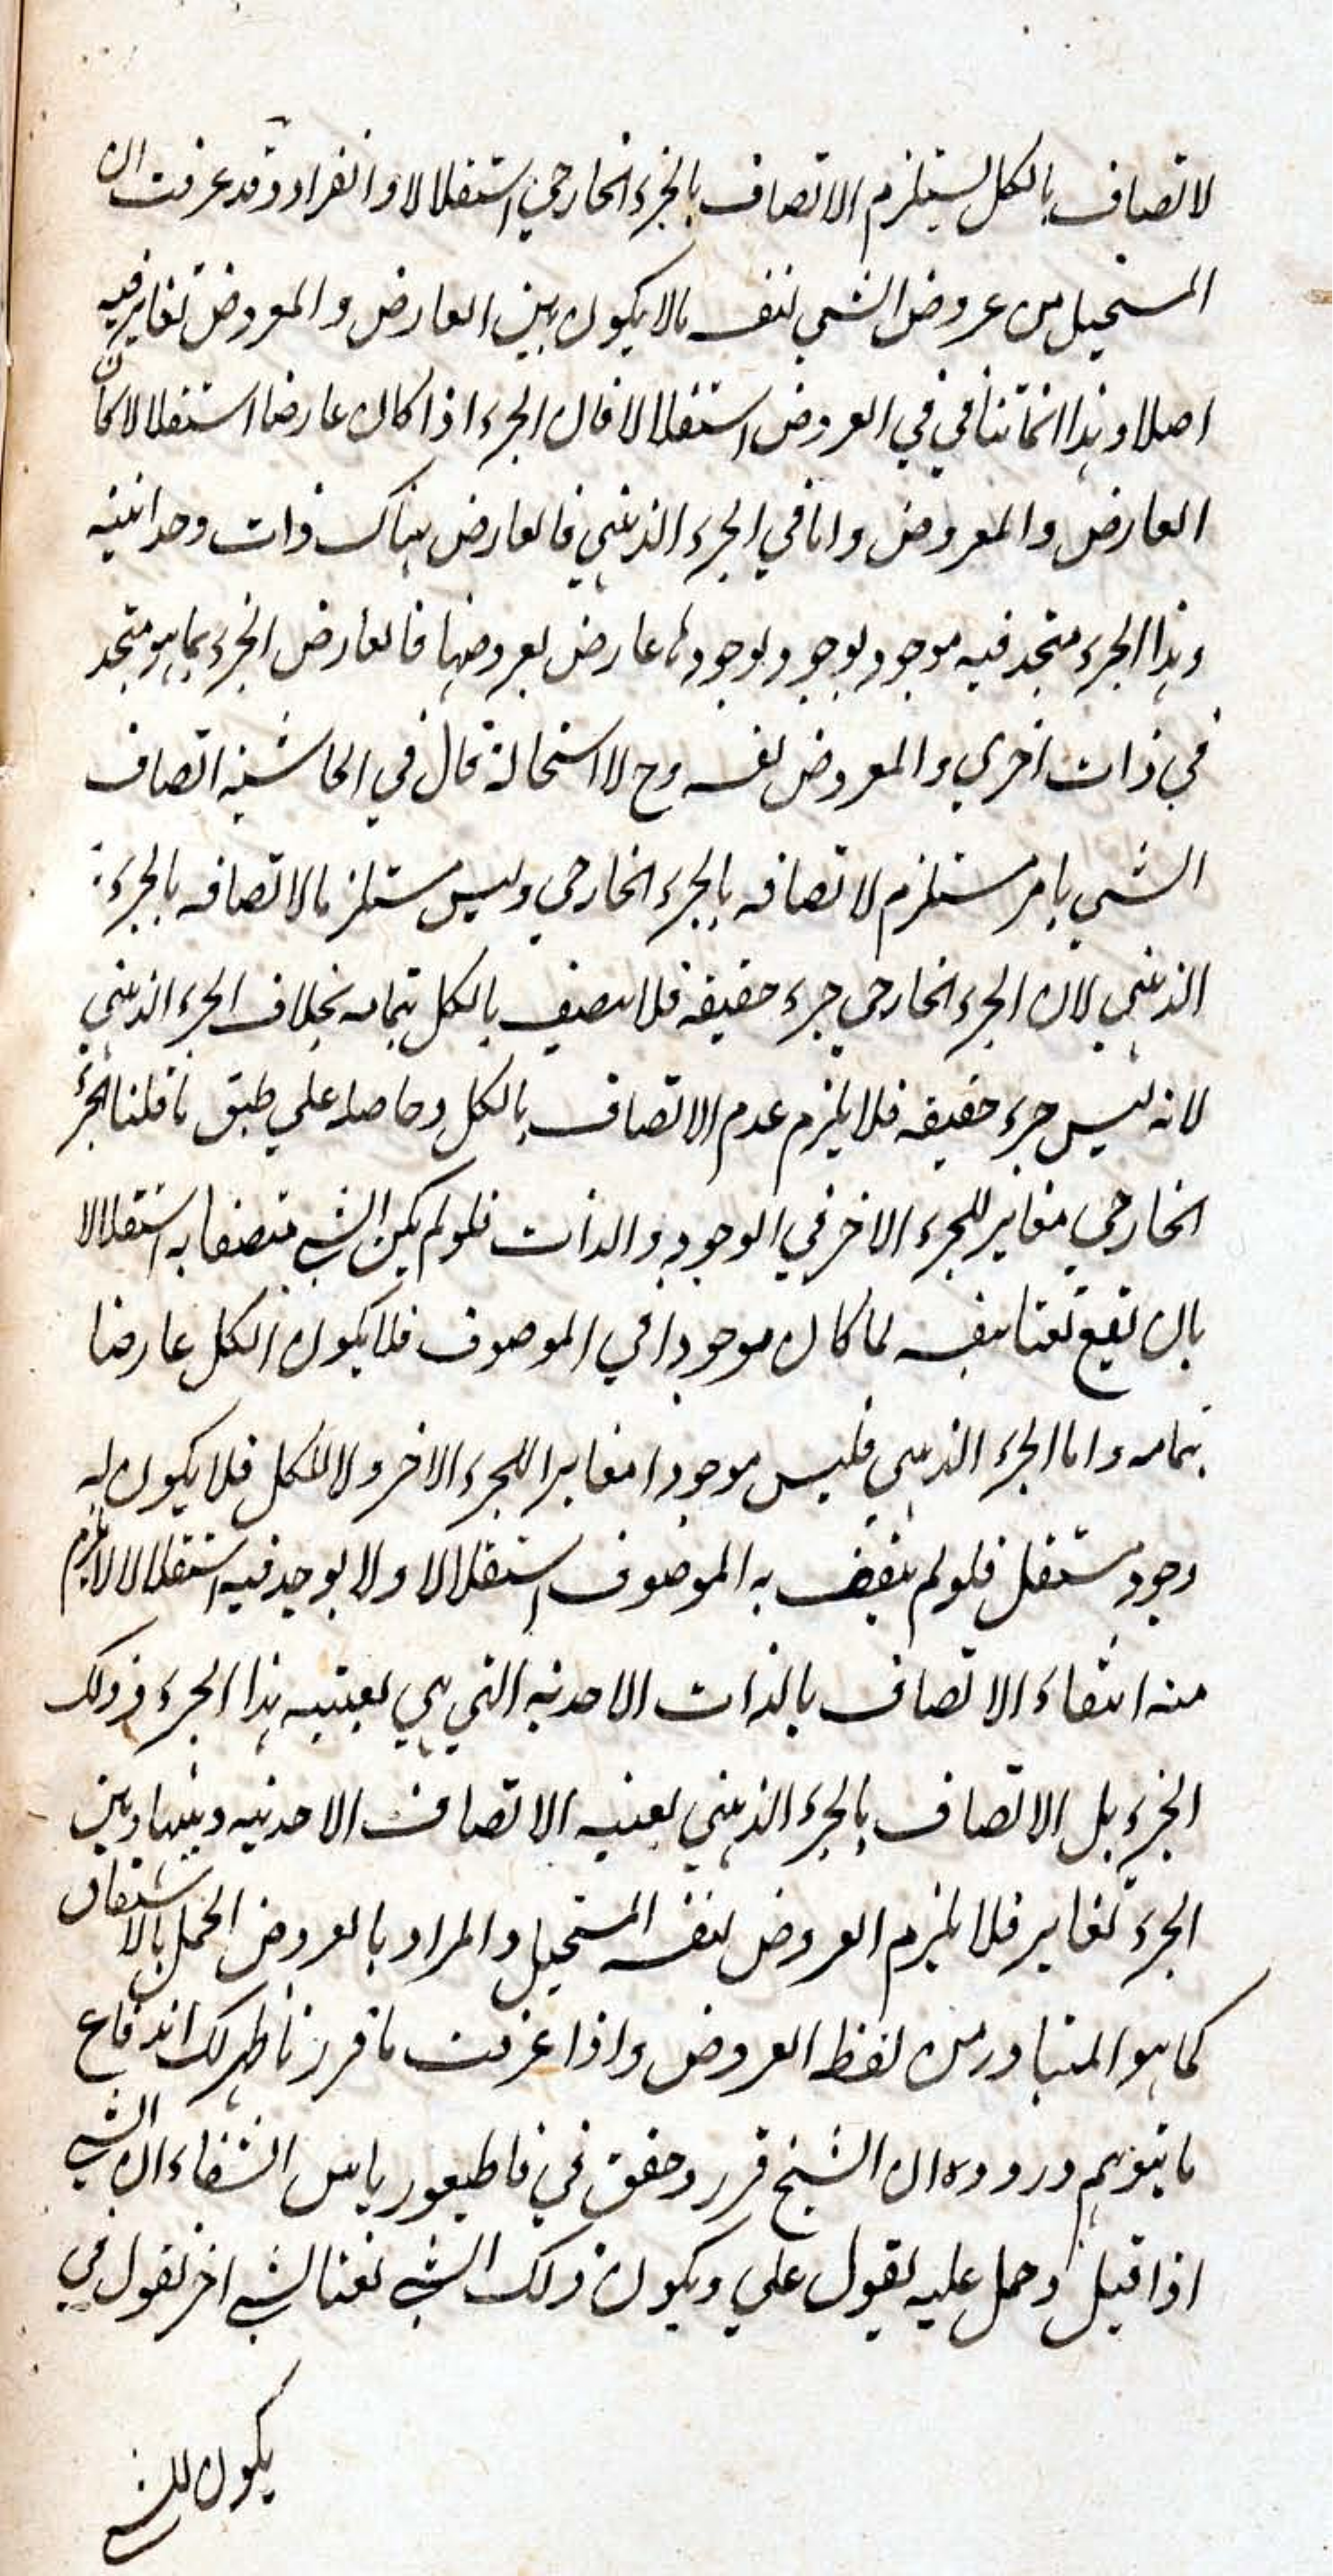 لاتصاف بالكل يستلزم الاتصاف بالجزء الخارجي استقلالا وانفرادا وقد عرفت ان
المستحيل من عروض الشي لنفسه مالا يكون بين العارض والمعروض تغاير فيه
اصلا وهذا انما يتأتي في العروض استقلالا فان الجزء اذا كان عارضا استقلالا كان
العارض والمعروض واما في الجزء الذهني فالعارض هناك ذات وحدانية
وهذا الجزء متحد فيه موجود بوجودها عارض بعروضها فالعارض الجزء بما هو متحد
في ذات اخري والمعروض نفسه وح لا استحالة قال في الحاشية اتصاف
الشي بامر مستلزم لاتصافه بالجزء الخارجي وليس مستلزما لاتصافه بالجزء
الذهني لان الجزء الخارجي جزء حقيقة فلا يتصف بالكل بتمامه بخلاف الجزء الذهني
لانه ليس جزء حقيقة فلا يلزم عدم الاتصاف بالكل وحاصله علي طبق ما قلنا الجزء
الخارجي مغاير للجزء الاخر في الوجود والذات فلو لم يكن الشي متصفا به استقلالا
بان يقع نعتا بنفسه لما كان موجودا في الموصوف فلا يكون الكل عارضا
بتمامه واما الجزء الذهني فليس موجودا مغايرا للجزء الاخر ولا للكل فلا يكون له
وجود مستقل فلو لم يتصف به الموصوف استقلالا ولا يوجد فيه استقلالا لا يلزم
منه انتفاء الاتصاف بالذات الاحدية التي هي بعينه هذا الجزء وذلك
الجزء بل الاتصاف بالجزء الذهني بعينه الاتصاف الاحدية وبينها وبين
الجزء تغاير فلا يلزم العروض لنفسه المستحيل والمراد بالعروض الحمل بالاشتقاق
كما هو المتبادر من لفظ العروض واذا عرفت ما قررنا ظهر لك اندفاع
ما يتوهم وروده ان الشيخ قرر وحقق في قاطيغورياس الشفاء ان الشي
اذا قيل وحمل عليه بقول علي ويكون ذلك الشي نعتا لشي اخر بقول في
يكون للشي